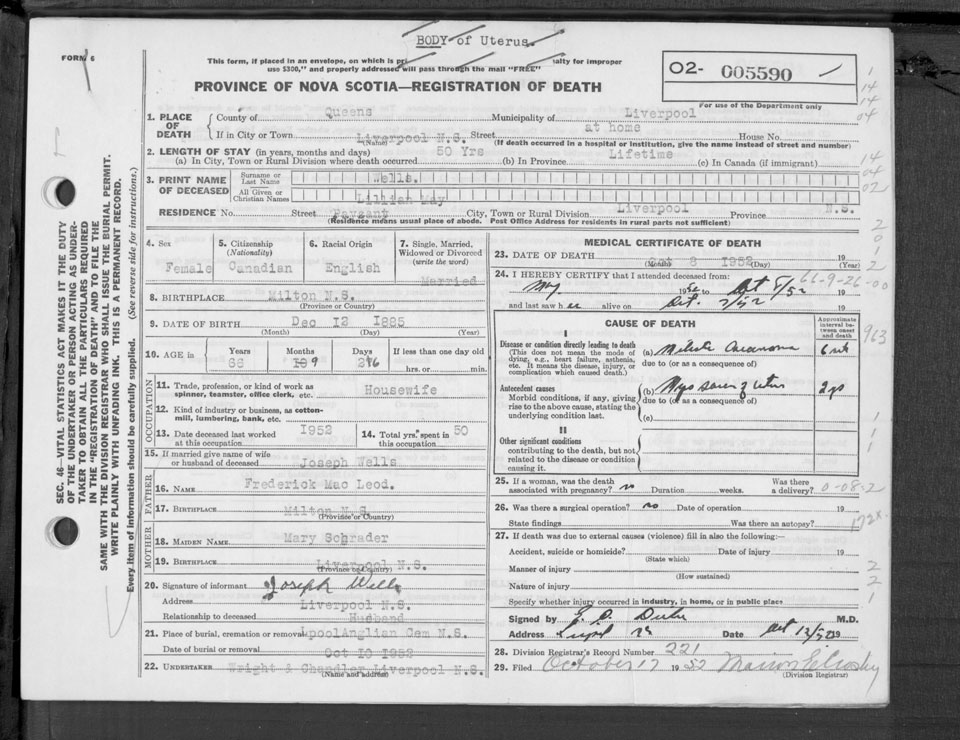 BODY of Uterus.
FORM 6
This form, if placed in an envelope, on which is pr alty for improper
use $300," and properly addressed will pass through the mail "FREE"
PROVINCE OF NOVA SCOTIA—REGISTRATION OF DEATH
02- 005590
For use of the Department only
1. PLACE OF DEATH County of Queens Municipality of Liverpool
If in City or Town Liverpool N.S. Street at home House No.
(Name) (If death occurred in a hospital or institution, give the name instead of street and number)
2. LENGTH OF STAY (in years, months and days) 50 Yrs Lifetime
(a) In City, Town or Rural Division where death occurred (b) In Province (c) In Canada (if immigrant)
3. PRINT NAME OF DECEASED Surname or Last Name Wells.
All Given or Christian Names Lillian May
RESIDENCE No. Street Payzant City, Town or Rural Division Liverpool Province N.S.
(Residence means usual place of abode. Post Office Address for residents in rural parts not sufficient)
4. Sex Female
5. Citizenship (Nationality) Canadian
6. Racial Origin English
7. Single, Married, Widowed or Divorced (write the word) Married
8. BIRTHPLACE Milton N.S.
(Province or Country)
9. DATE OF BIRTH Dec 12 1885
(Month) (Day) (Year)
10. AGE in Years Months 9 Days If less than one day old
hrs. or min.
OCCUPATION
11. Trade, profession, or kind of work as spinner, teamster, office clerk, etc. Housewife
12. Kind of industry or business, as cotton-mill, lumbering, bank, etc.
13. Date deceased last worked at this occupation 1952
14. Total yrs. spent in this occupation 50
15. If married give name of wife or husband of deceased Joseph Wells
FATHER
16. NAME Frederick Mac Leod.
17. BIRTHPLACE Milton N.S.
(Province or Country)
MOTHER
18. MAIDEN NAME Mary Schrader
19. BIRTHPLACE Liverpool N.S.
(Province or Country)
20. Signature of informant Joseph Wells
Address Liverpool N.S.
Relationship to deceased Husband
21. Place of burial, cremation or removal LpoolAnglian Cem N.S.
Date of burial or removal Oct 10 1952
22. UNDERTAKER Wright & Chandler Liverpool N.S.
(Name and address)
MEDICAL CERTIFICATE OF DEATH
23. DATE OF DEATH Oct 8 1952 19
(Month) (Day) (Year)
24. I HEREBY CERTIFY that I attended deceased from:
1952 to Oct 8/52 19
and last saw her alive on Oct. 7/52 19
66-9-26-00
CAUSE OF DEATH
Approximate interval between onset and death
I
Disease or condition directly leading to death
(This does not mean the mode of dying, e.g., heart failure, asthenia, etc. It means the disease, injury, or complication which caused death.)
(a)
due to (or as a consequence of)
Antecedent causes
Morbid conditions, if any, giving rise to the above cause, stating the underlying condition last.
(b)
due to (or as a consequence of)
(c)
II
Other significant conditions
contributing to the death, but not related to the disease or condition causing it.
25. If a woman, was the death associated with pregnancy? no Duration weeks. Was there a delivery?
26. Was there a surgical operation? no Date of operation 19
State findings Was there an autopsy?
27. If death was due to external causes (violence) fill in also the following:—
Accident, suicide or homicide? Date of injury 19
(State which)
Manner of injury
(How sustained)
Nature of injury
Specify whether injury occurred in industry, in home, or in public place
Signed by M.D.
Address Date Oct 19
28. Division Registrar's Record Number 221
29. Filed October 17 1952
(Division Registrar)
SEC. 46—VITAL STATISTICS ACT MAKES IT THE DUTY
OF THE UNDERTAKER OR PERSON ACTING AS UNDER-
TAKER TO OBTAIN ALL THE PARTICULARS REQUIRED
IN THE "REGISTRATION OF DEATH" AND TO FILE THE
SAME WITH THE DIVISION REGISTRAR WHO SHALL ISSUE THE BURIAL PERMIT.
WRITE PLAINLY WITH UNFADING INK. THIS IS A PERMANENT RECORD.
Every item of information should be carefully supplied. (See reverse side for instructions.)